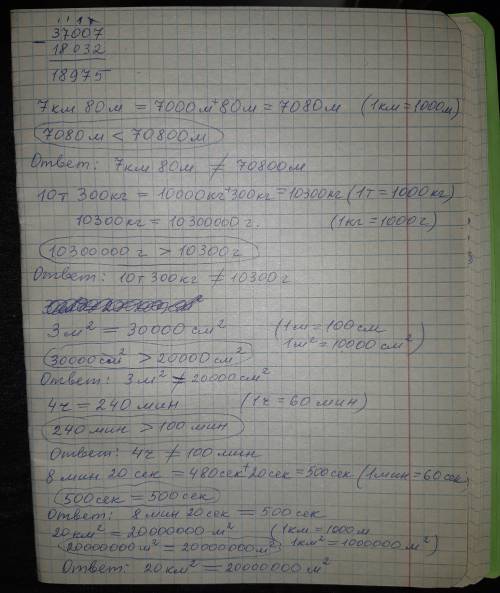 37007
- 18032
18975
7км 80м = 7000м+80м = 7080м (1км=1000м)
7080м < 70800м
Ответ: 7км 80м ≠ 70800м
10т 300кг = 10000кг+300кг=10300кг (1т=1000кг)
10300кг = 10300000г. (1кг=1000г)
10300000г > 10300г
Ответ: 10т 300кг ≠ 10300г
3м² = 30000см² (1м=100см
1м²=10000см²)
30000см² > 20000см²
Ответ: 3м² ≠ 20000см²
4ч = 240мин (1ч=60мин)
240мин > 100мин
Ответ: 4ч ≠ 100мин
8 мин 20 сек = 480сек+20сек=500сек (1мин=60сек
500сек = 500сек
Ответ: 8 мин 20сек = 500сек
20км² = 20000000м² (1км=1000м
20000000м² = 20000000м² 1км²=1000000м²)
Ответ: 20км² = 20000000м²